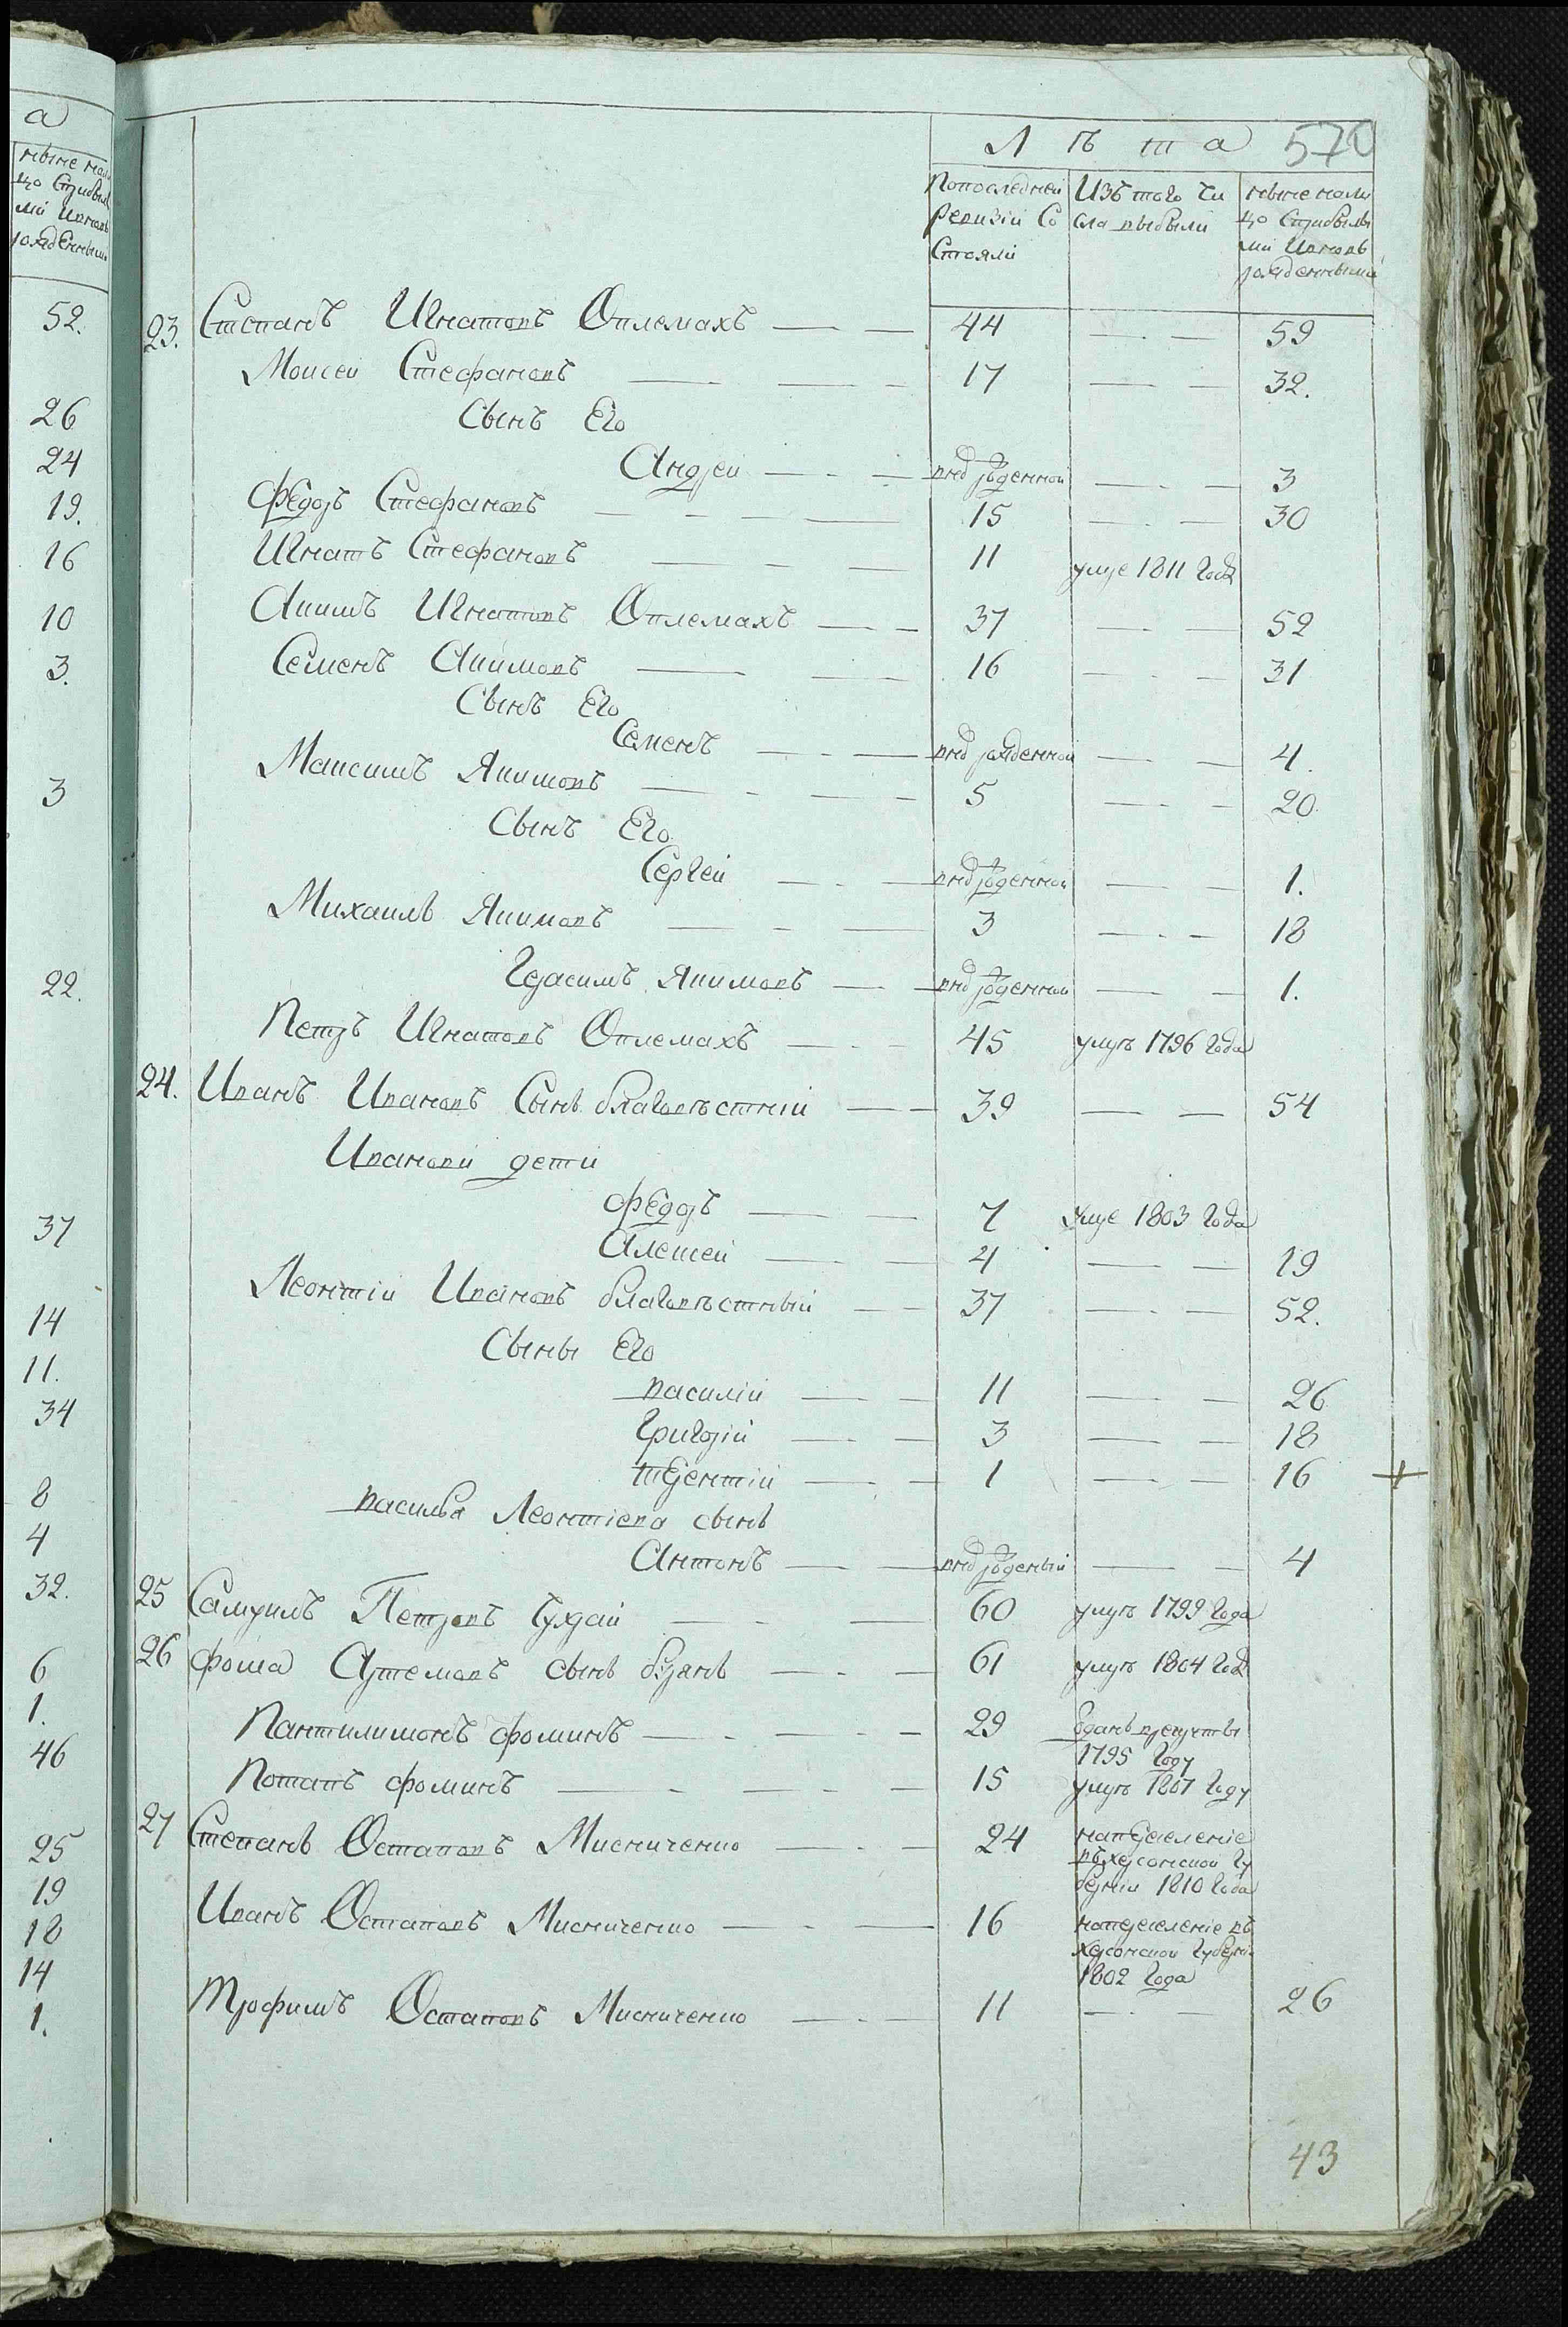 а
ныне нали
цо Сприбылы
ми Ивновь
рожденными
52.
26
24
19.
16
10
3.
3
22.
37
14
11.
34
8
4
32.
6
1.
46
25
19
18
14
1.
Лѣта 570
Попоследней Ревизiи Состояли
Изъ того Числа выбыли
ныне нали цо Сприбылы ми Ивновь рожденными
23. Степанъ Игнатовъ Оплемахъ 44 59
Моисеи Стефановъ 17 32.
Сынъ Его
Андреи внѡв рожденнои 3
Федоръ Стефановъ 15 30
Игнатъ Стефановъ 11 умре 1811 Года
Акимъ Игнатовъ Оплемахъ 37 52
Семенъ Акимовъ 16 31
Сынъ Его
Семенъ внов рожденнои 4.
Максимъ Якимовъ 5 20.
Сынъ Его
Сергеи внов рожденнои 1.
Михаилъ Якимовъ 3 18
Герасимъ Якимовъ внов рожденнои 1.
Петръ Игнатовъ Оплемахъ 45 умрѣ 1796 Года
24. Иванъ Ивановъ Сынъ благовѣстнiи 39 54
Иванови дети
Федоръ 7 умре 1803 Года
Алексеи 4 19
Леонтiи Ивановъ благовѣстный 37 52.
Сыны Его
василiи 11 26
Григорiи 3 18
терентiи 1 16 +
василья Леонтiева сынъ
Антонъ внов рожденый 4
25 Самуилъ Петровъ Чухраи 60 умрѣ 1799 Года
26 фома Артемовъ сынъ буянъ 61 умрѣ 1804 Года
Пантилимонъ фоминъ 29 Зданъ врекруты
1795 Году
Потапъ фоминъ 15 умрѣ 1807 Году
27 Степанъ Остаповъ Мисниченко 24 напереселенiе
въ херсонскои Гу
бернiи 1810 Года
Иванъ Остаповъ Мисниченко 16 напереселенiе въ
херсонскои Губернi
1802 Года
Трофимъ Остаповъ Мисниченко 11 26
43